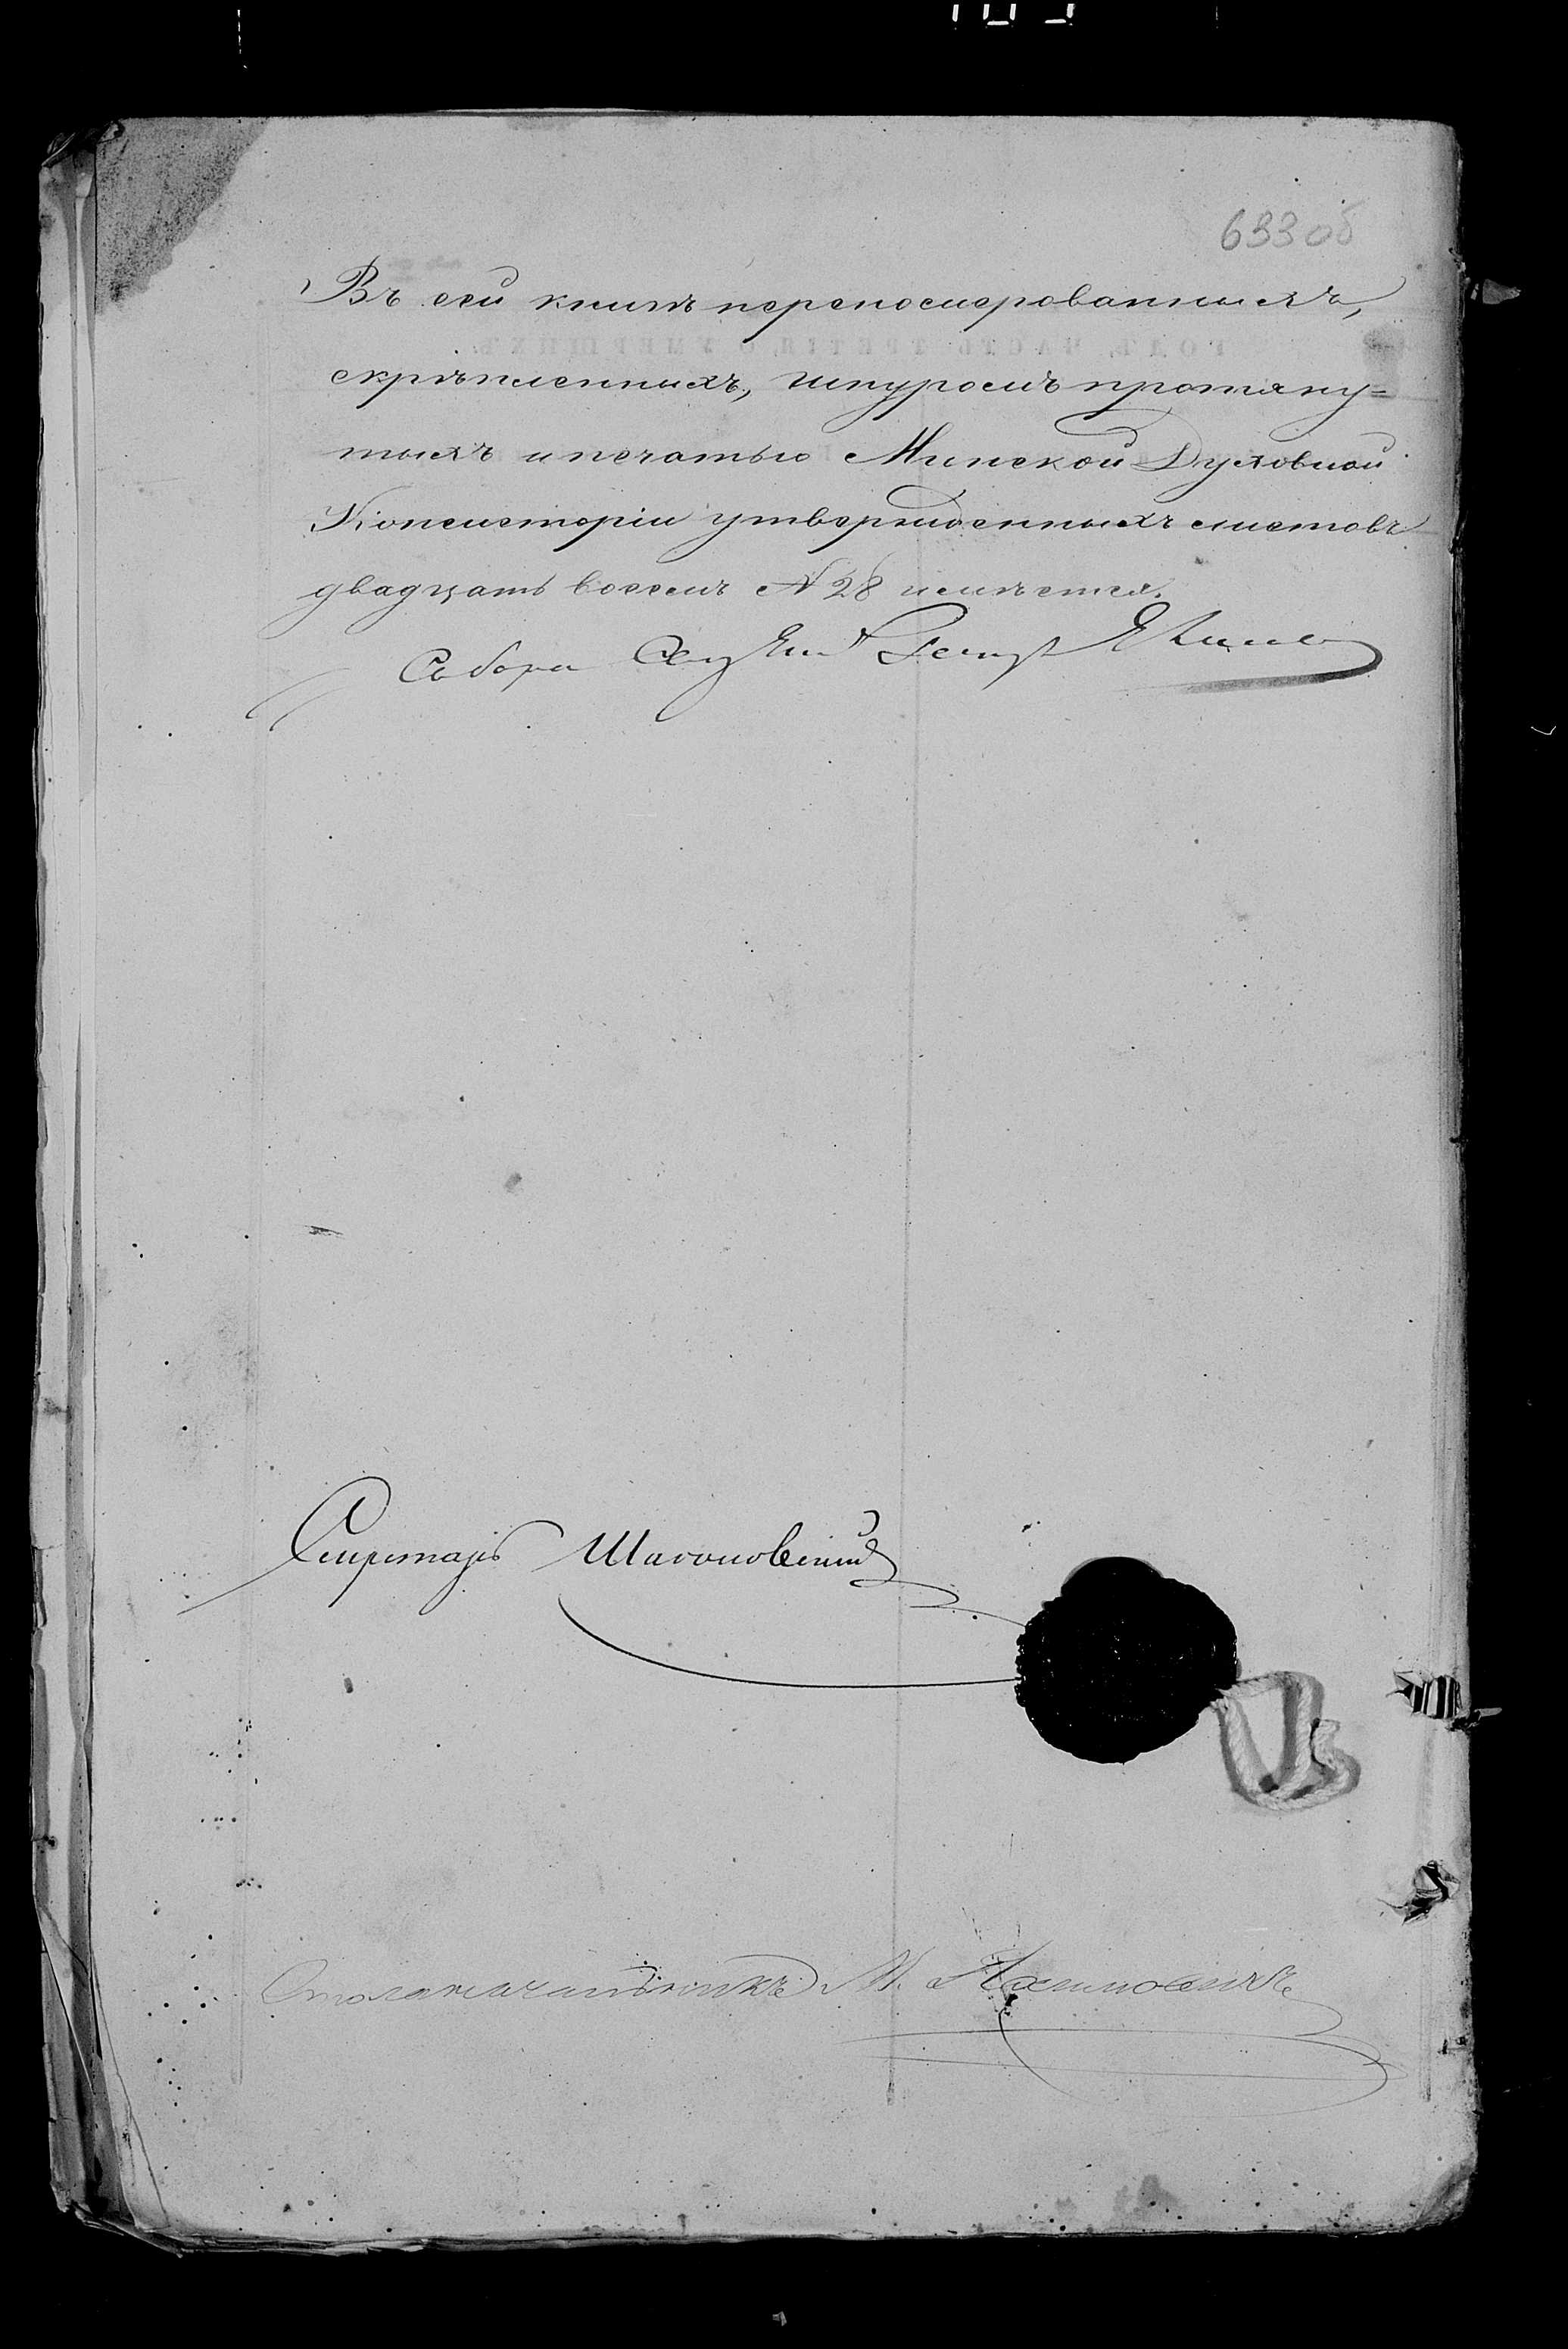 633 об
Въ сей книгѣ перенумерованныхъ,
скрѣпленныхъ, шнуромъ протяну-
тыхъ и печатью Минской Духовной
Консисторіи утвержденныхъ листовъ
двадцать восемь № 28 имѣется.
Собора
Секретарь
Столоначальникъ М.